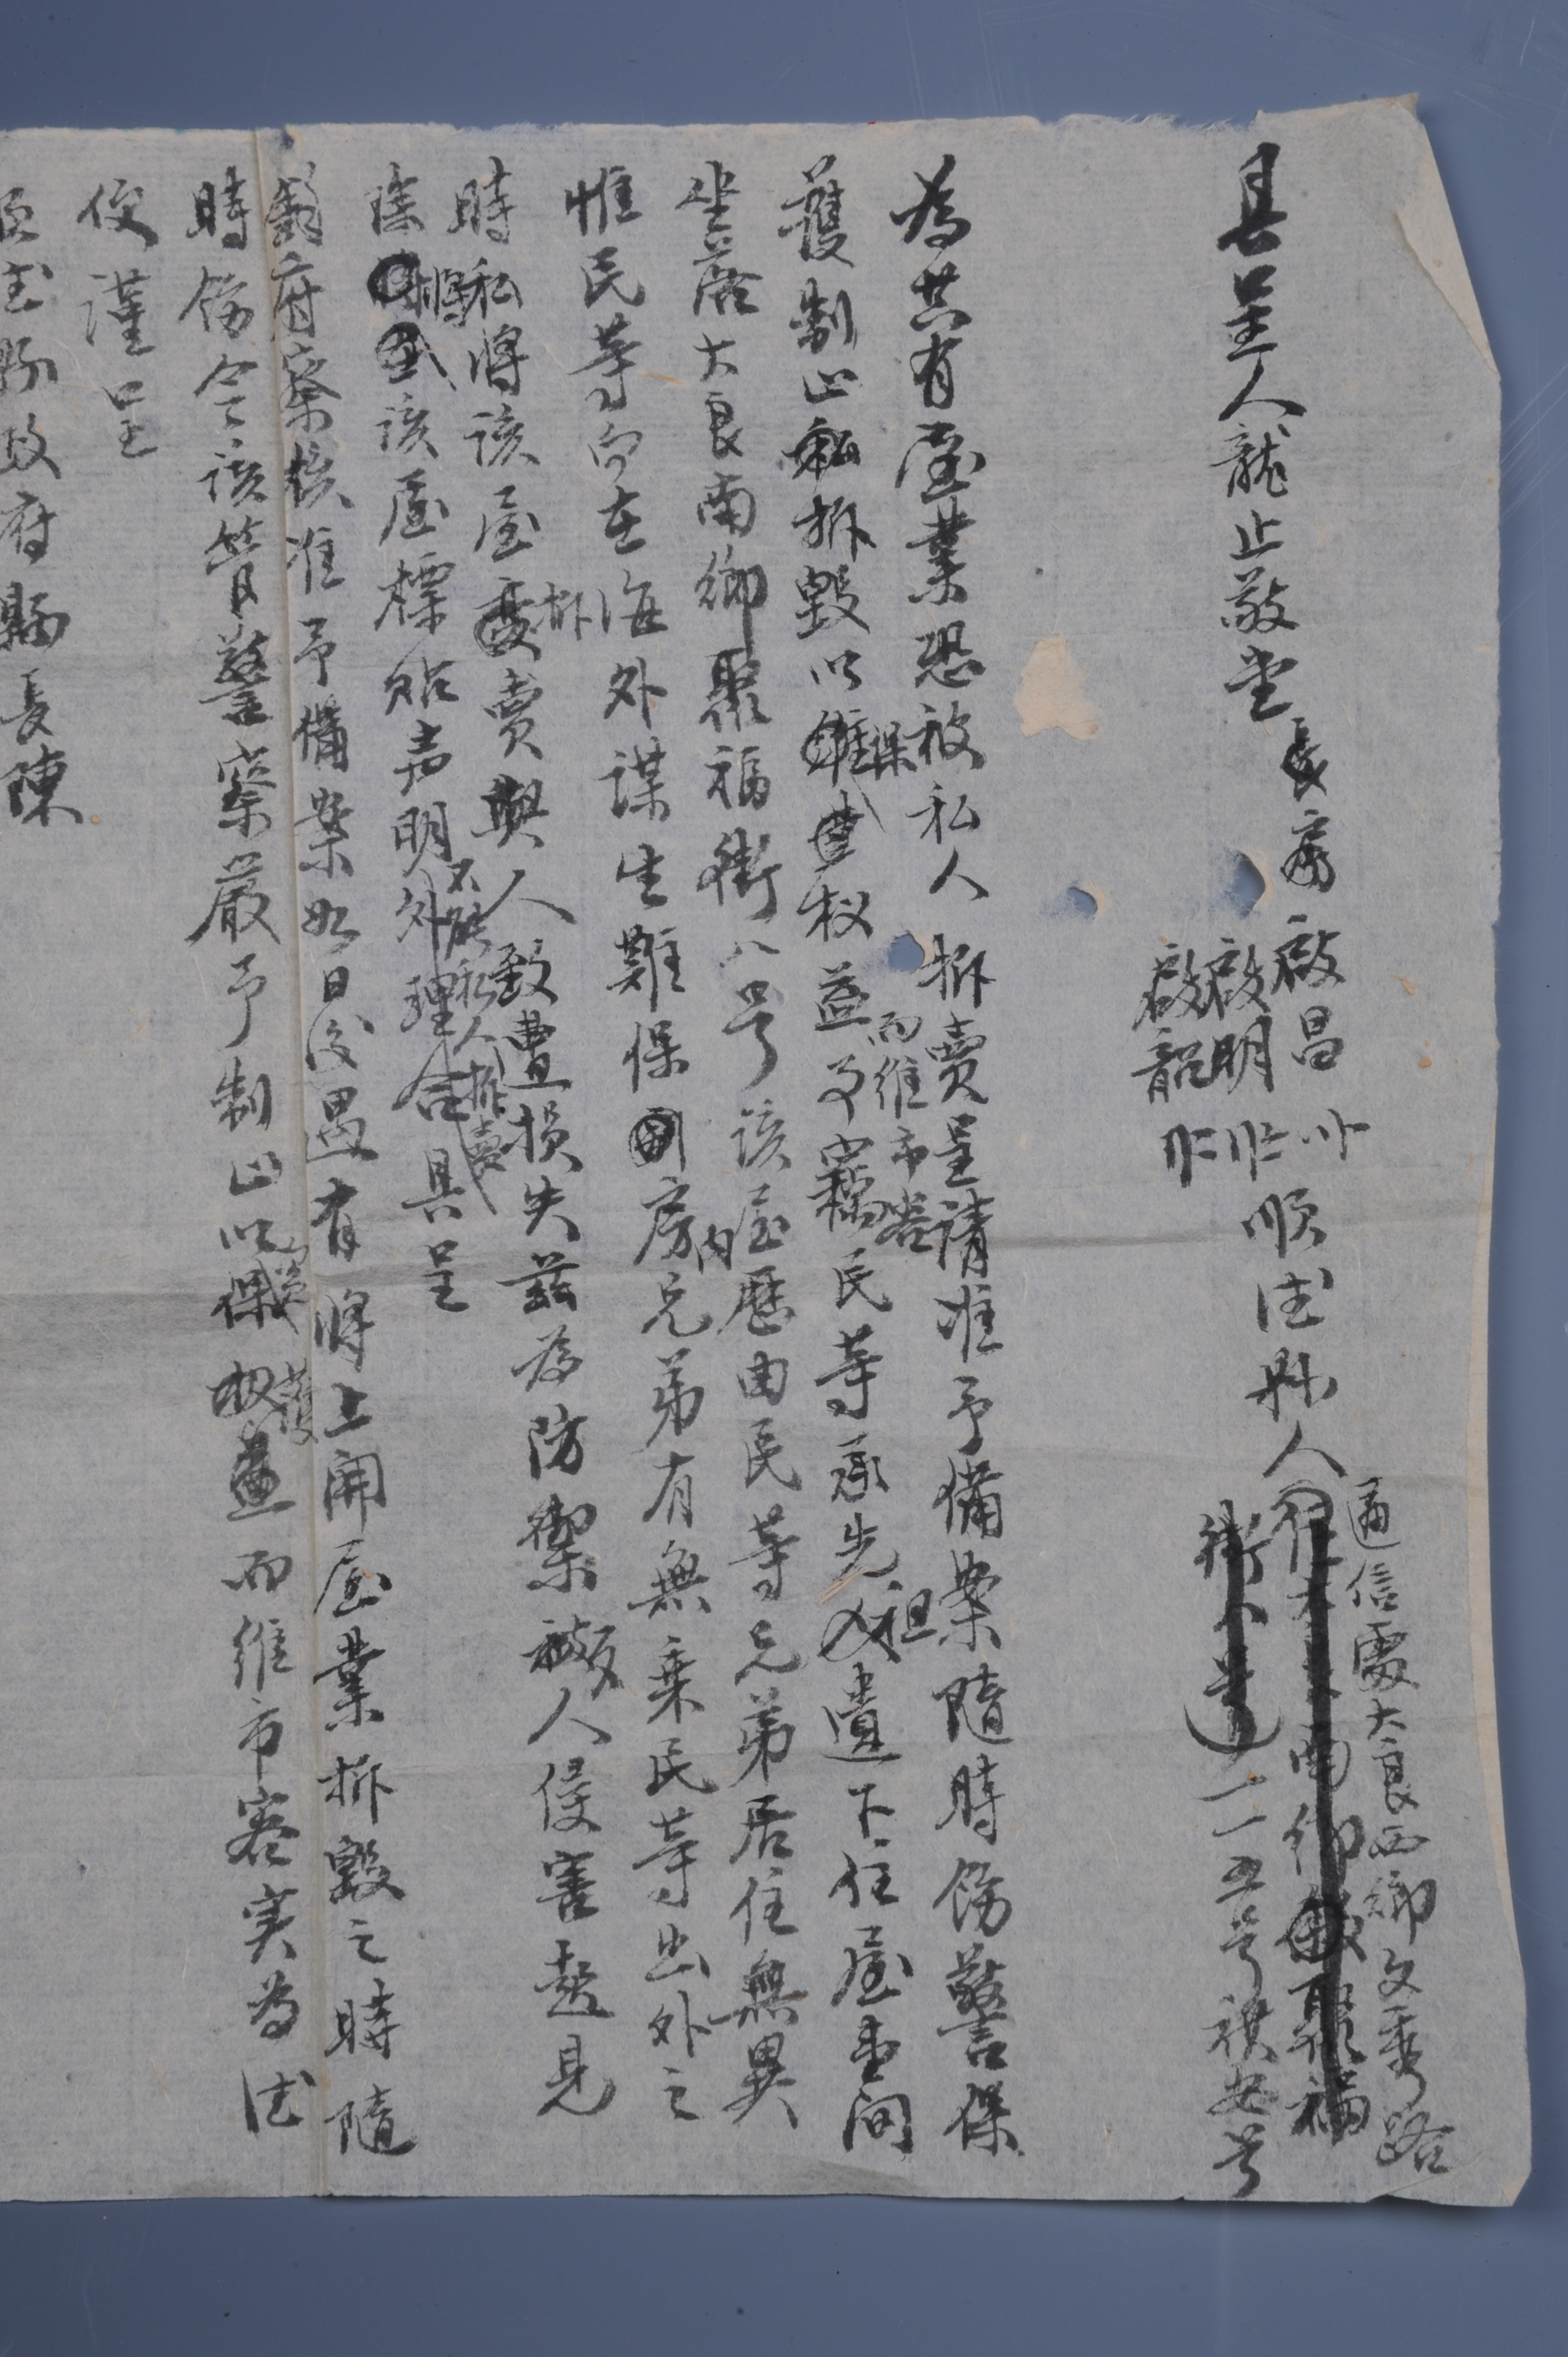 具呈人龍止敬堂長房啟昌
啟明
啟韶
順德縣人
通信處大良西鄉文秀路
二一五号祺安号
為共有屋業恐被私人拆賣呈請准予備案隨時飭警保
護制止私拆毀以保權益而維市容事竊民等承先祖遺下住屋壹間
坐落大良南鄉聚福街八号該屋歷由民等兄弟居住無異
惟民等向在海外謀生難保房內兄弟有無乘民等出外之
時私將該屋拆賣與人致遭損失茲為防禦被人侵害起見
除將該屋標貼声明不能私人拆賣外理合具呈
鈞府察核准予備案如日後遇有將上開屋業拆毀之時隨
時飭令該管警察嚴予制止以保權益而維市容実為德
便謹呈
順德縣政府縣長陳